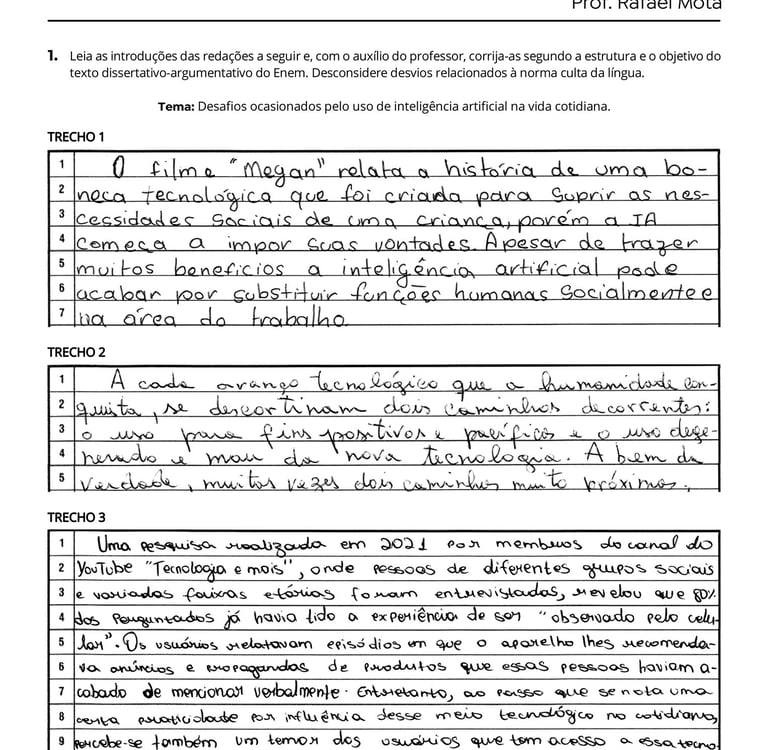 Prof. Rafael Mota
1. Leia as introduções das redações a seguir e, com o auxílio do professor, corrija-as segundo a estrutura e o objetivo do
texto dissertativo-argumentativo do Enem. Desconsidere desvios relacionados à norma culta da língua.
Tema: Desafios ocasionados pelo uso de inteligência artificial na vida cotidiana.
TRECHO 1
1 O filme "Megan" relata a história de uma bo-
2 neca tecnológica que foi criada para suprir as nes-
3 cessidades sociais de uma criança, porém a IA
4 começa a impor suas vontades. Apesar de trazer
5 muitos beneficios a inteligência artificial pode
6 acabar por substituir funções humanas socialmente e
7 na área do trabalho.
TRECHO 2
1 A cada avanço tecnológico que a humanidade con-
2 quista, se descortinam dois caminhos decorrentes:
3 o uso para fins positivos e pacíficos e o uso dege-
4 nerado e mau da nova tecnologia. A bem da
5 verdade, muitas vezes dois caminhos muito próximos.
TRECHO 3
1 Uma pesquisa realizada em 2021 por membros do canal do
2 YouTube "Tecnologia e mais", onde pessoas de diferentes grupos sociais
3 e variadas faixas etárias foram entrevistadas, revelou que 80%
4 dos perguntados já havia tido a experiência de ser "observado pelo celu-
5 lar". Os usuários relatavam episódios em que o aparelho lhes recomenda-
6 va anúncios e propagandas de produtos que essas pessoas haviam a-
7 cabado de mencionar verbalmente. Entretanto, ao passo que se nota uma
8 certa praticidade por influência desse meio tecnológico no cotidiano,
9 percebe-se também um temor dos usuários que tem acesso a essa tecno